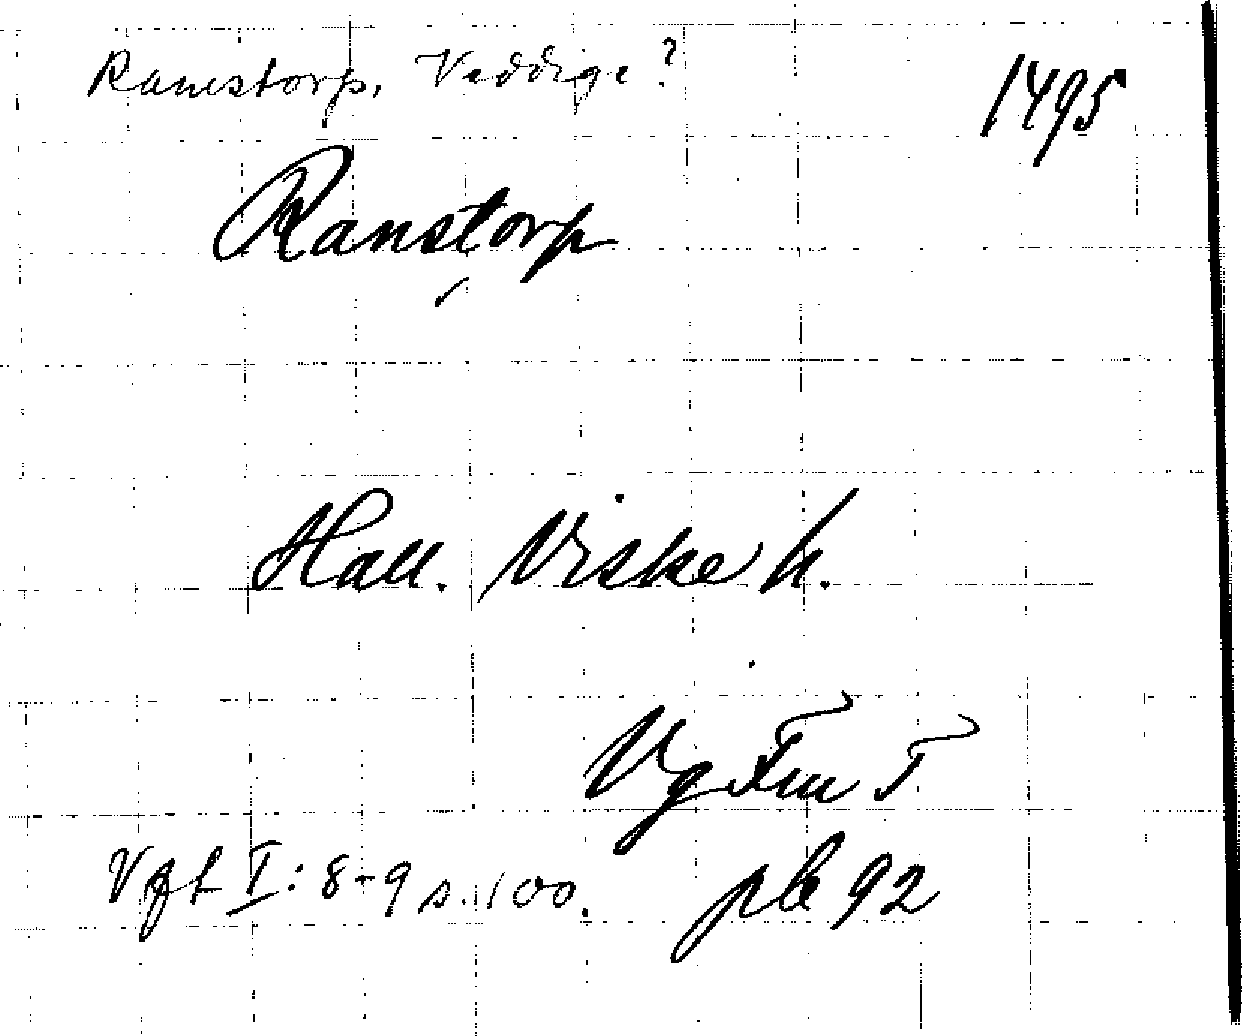 Ramstorp, Veddige?
1495
Ranstorp
Hall. Viske h.
Vg Fm T
Vgft I: 8-9 s. 100.
pb 92